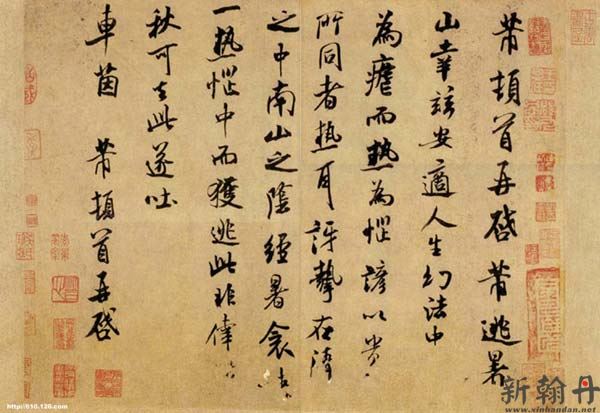 芾頓首再啓芾逃暑
山幸茲安適人生幻法中
為瘧而熱為惱諺以貴
所同者熱耳訝挈在清
之中南山之陰經暑衾
一熱惱中而獲逃此非倖
秋可去此遂吐
車茵 芾頓首再啓
新翰丹
www.xinhandan.net
http://610.126.com